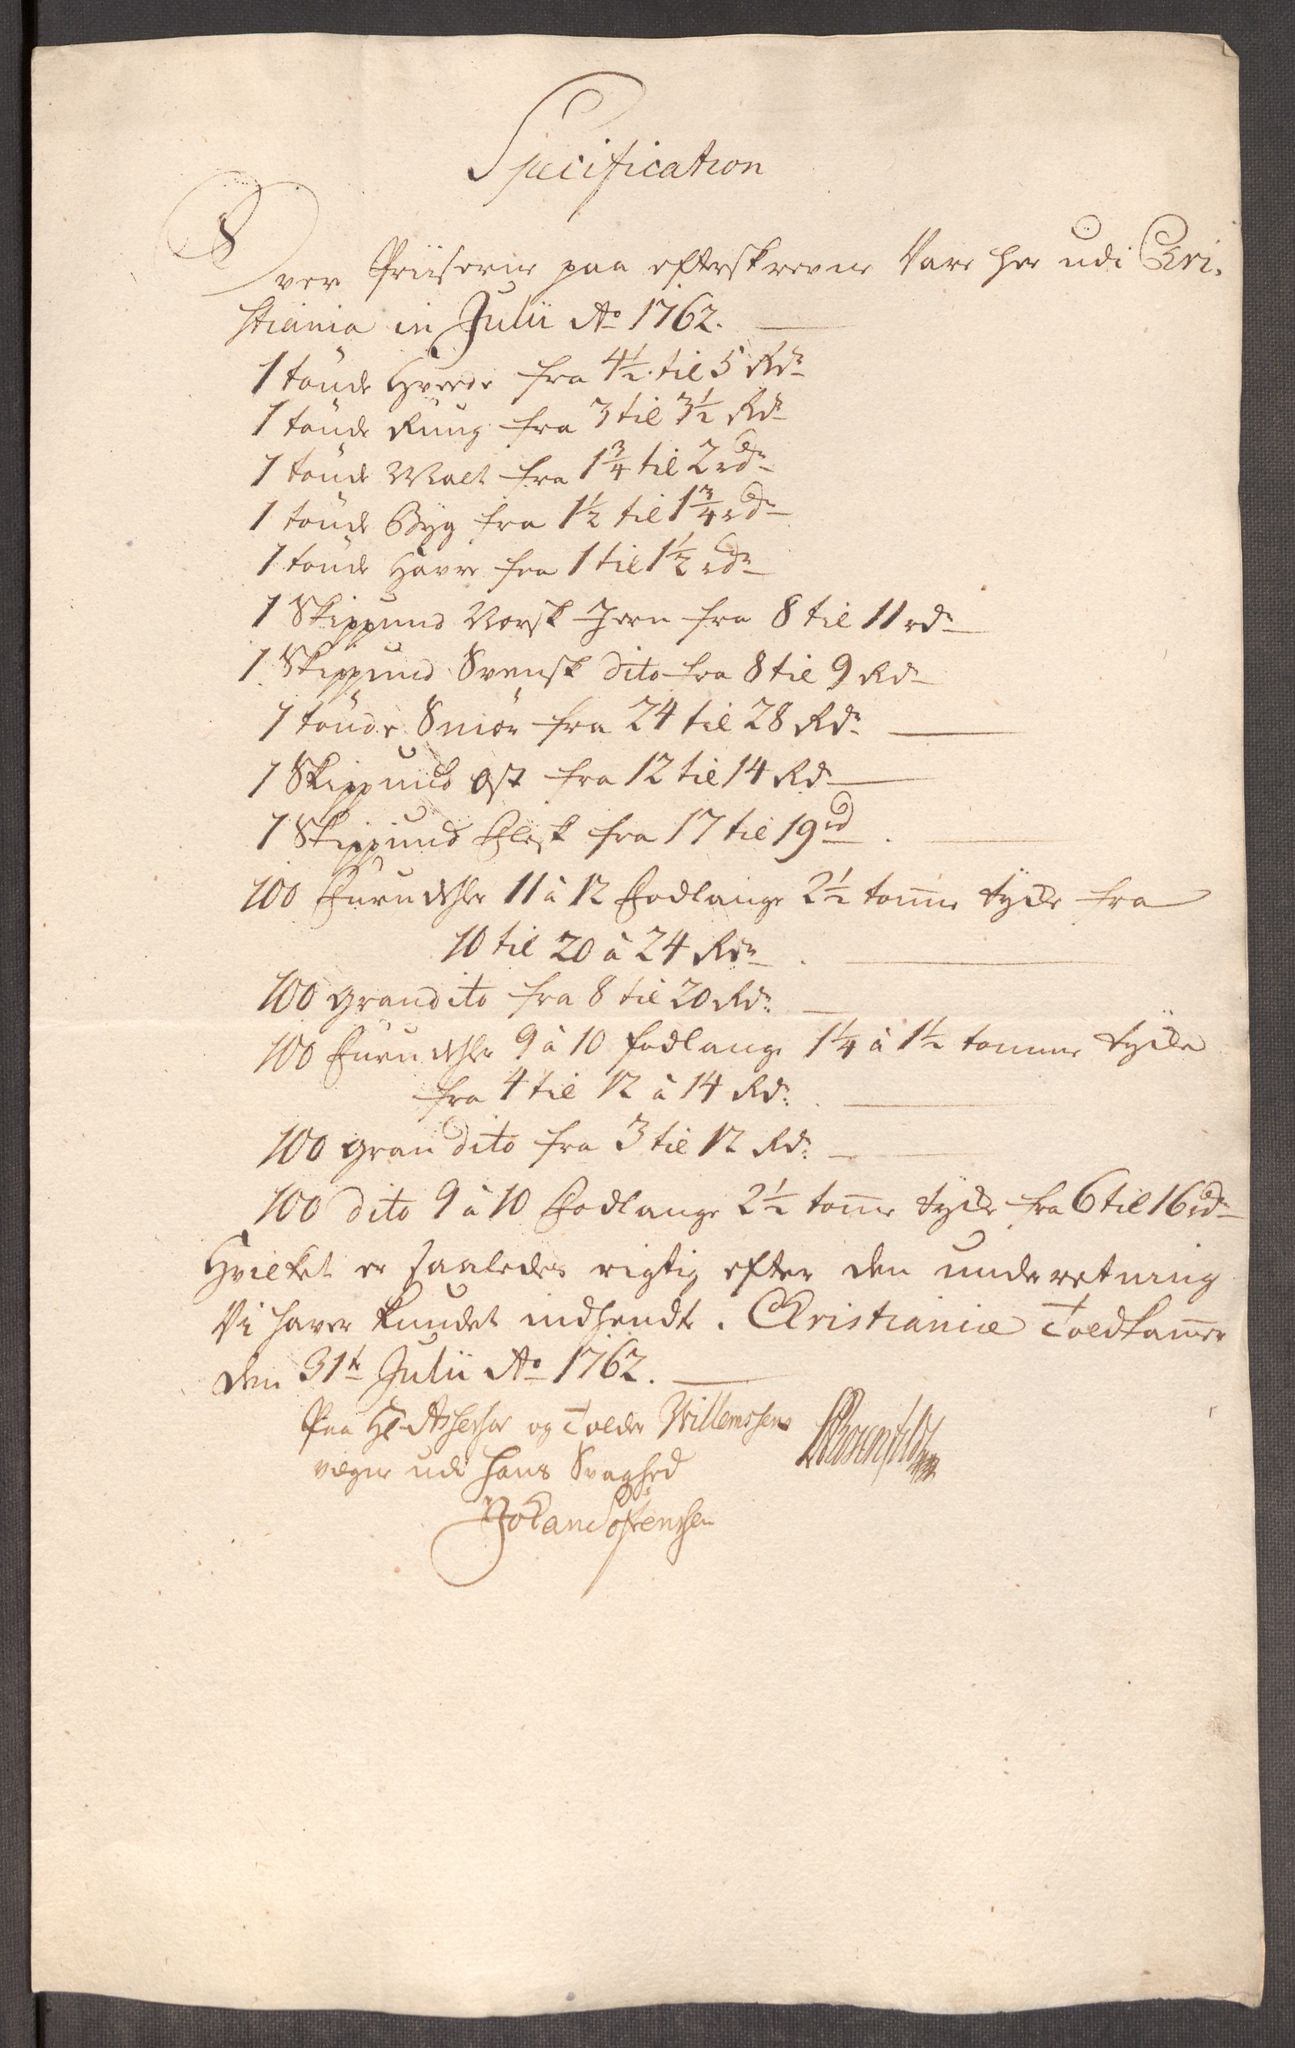 Specification
Over Priiserne paa efterskrevne Vare her udi Chri-
stiania in Julii Ao 1762.
1 tönde Hvede fra 4½ til 5 Rdr
1 tönde Rüug fra 3 til 3½ Rdr
1 tönde Malt fra 1¾ til 2 rdr
1 tönde Byg fra 1½ til 1¾ rdr
1 tönde Havre fra 1 til 1½ rdr
1 Skippund Norsk Jern fra 8 til 11 rdr
1 Skippund Svensk dito fra 8 til 9 Rdr
1 tönde Smör fra 24 til 28 Rdr
1 Skippund Ost fra 12 til 14 Rdr
1 Skippund Flesk fra 17 til 19 rd
100 Furudehler 11 à 12 Fodlange 2½ tomme tycke fra
10 til 20 à 24 Rdr.
100 gran dito fra 8 til 20 Rdr.
100 Furudehler 9 à 10 fodlange 1¼ à 1½ tomme tycke
fra 4 til 12 à 14 Rdr.
100 gran dito fra 3 til 12 Rdr.
100 dito 9 à 10 Fodlange 2½ tomme tycke fra 6 til 16 rdr
Hvilket er saaledes rigtig efter den underretning
Vi haver kundet indhendte. Christianiæ Toldkammer
den 31te Julii Ao 1762.
Paa Hr Assessor og Tolder Willemssens
vegne udi hans Svaghed
Johan Sostenssen
Rosenfeldt